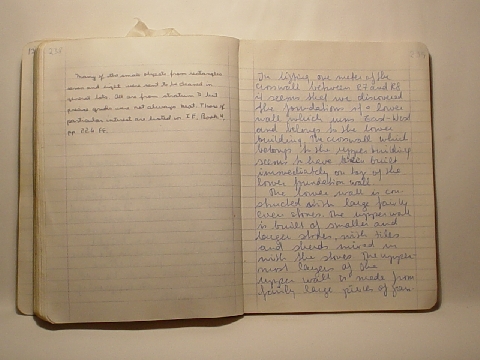 235
Many of the small objects from rectangles
seven and eight were said to be thrown in
general lots. All are from stratum II but
grades were not always kept. Those of
particular interest are listed in IF, Book 4,
pp. 226 ff.
In lifting one meter of the
crosswall between R7 and R8
it seems that we discovered
the foundations of a lower
wall which runs East-West
and belongs to the lower
building. The crosswall which
belongs to the upper building
seems to have been built
immediately on top of the
lower foundation wall.
The lower wall is con-
structed with large fairly
even stones. The upper wall
is built of smaller and
larger stones, with tiles
and sherds mixed in
with the stones. The upper-
most layers of the
upper wall is made from
fairly large pieces of